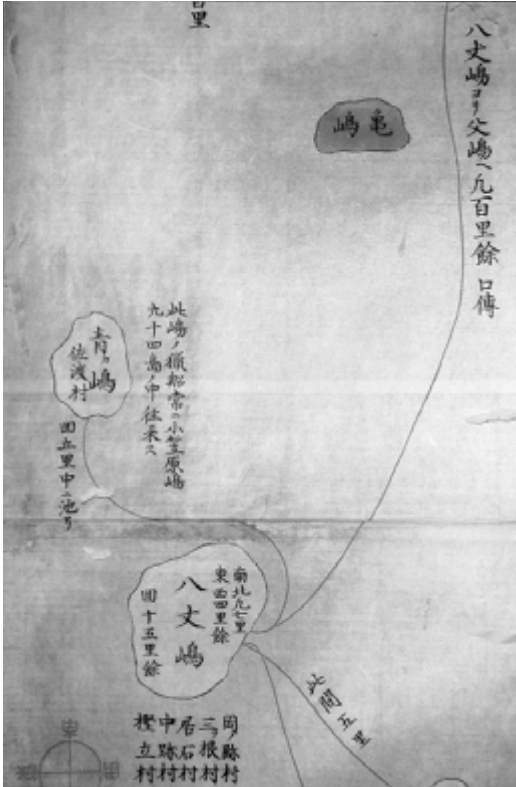 八丈嶋ヨリ父嶋ヘ凡百里餘 口傳
百里
亀嶋
此嶋ノ猟船常ニ小笠原嶋
九十四島ノ中往来ス
青ヶ嶋
佐渡村
回五里中ニ池有
南北凡七里
東西四里餘
八丈嶋
回十五里餘
此間五里
岡ノ跡村
三ツ根村
居石村
中跡村
樫立村
東